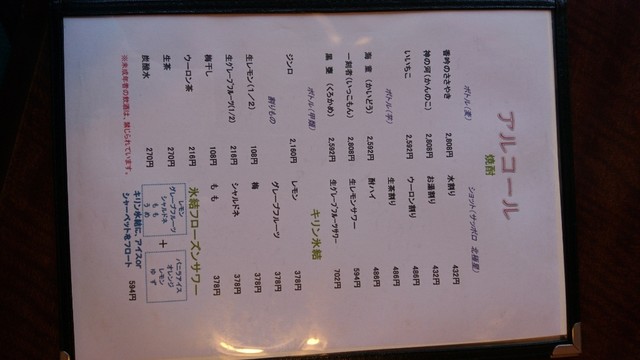 アルコール
焼酎
ボトル(麦)
香吟のささやき 2,808円
神の河(かんのこ) 2,808円
いいちこ 2,592円
ボトル(芋)
海 童 (かいどう) 2,592円
一刻者(いっこもん) 2,808円
黒 甕 (くろかめ) 2,592円
ボトル(甲類)
ジンロ 2,160円
割りもの
生レモン(1/2) 108円
生グレープフルーツ(1/2) 216円
梅干し 108円
ウーロン茶 216円
生茶 270円
炭酸水 270円
※未成年者の飲酒は、禁じられています。
ショット(サッポロ 北極星)
水割り 432円
お湯割り 432円
ウーロン割り 486円
生茶割り 486円
酎ハイ 486円
生レモンサワー 594円
生グレープフルーツサワー 702円
キリン氷結
レモン 378円
グレープフルーツ 378円
梅 378円
シャルドネ 378円
もも 378円
氷結フローズンサワー
レモン
グレープフルーツ
シャルドネ
もも
うめ
+
バニラアイス
オレンジ
レモン
ゆず
キリン氷結に、アイスor
シャーベットをフロート 594円